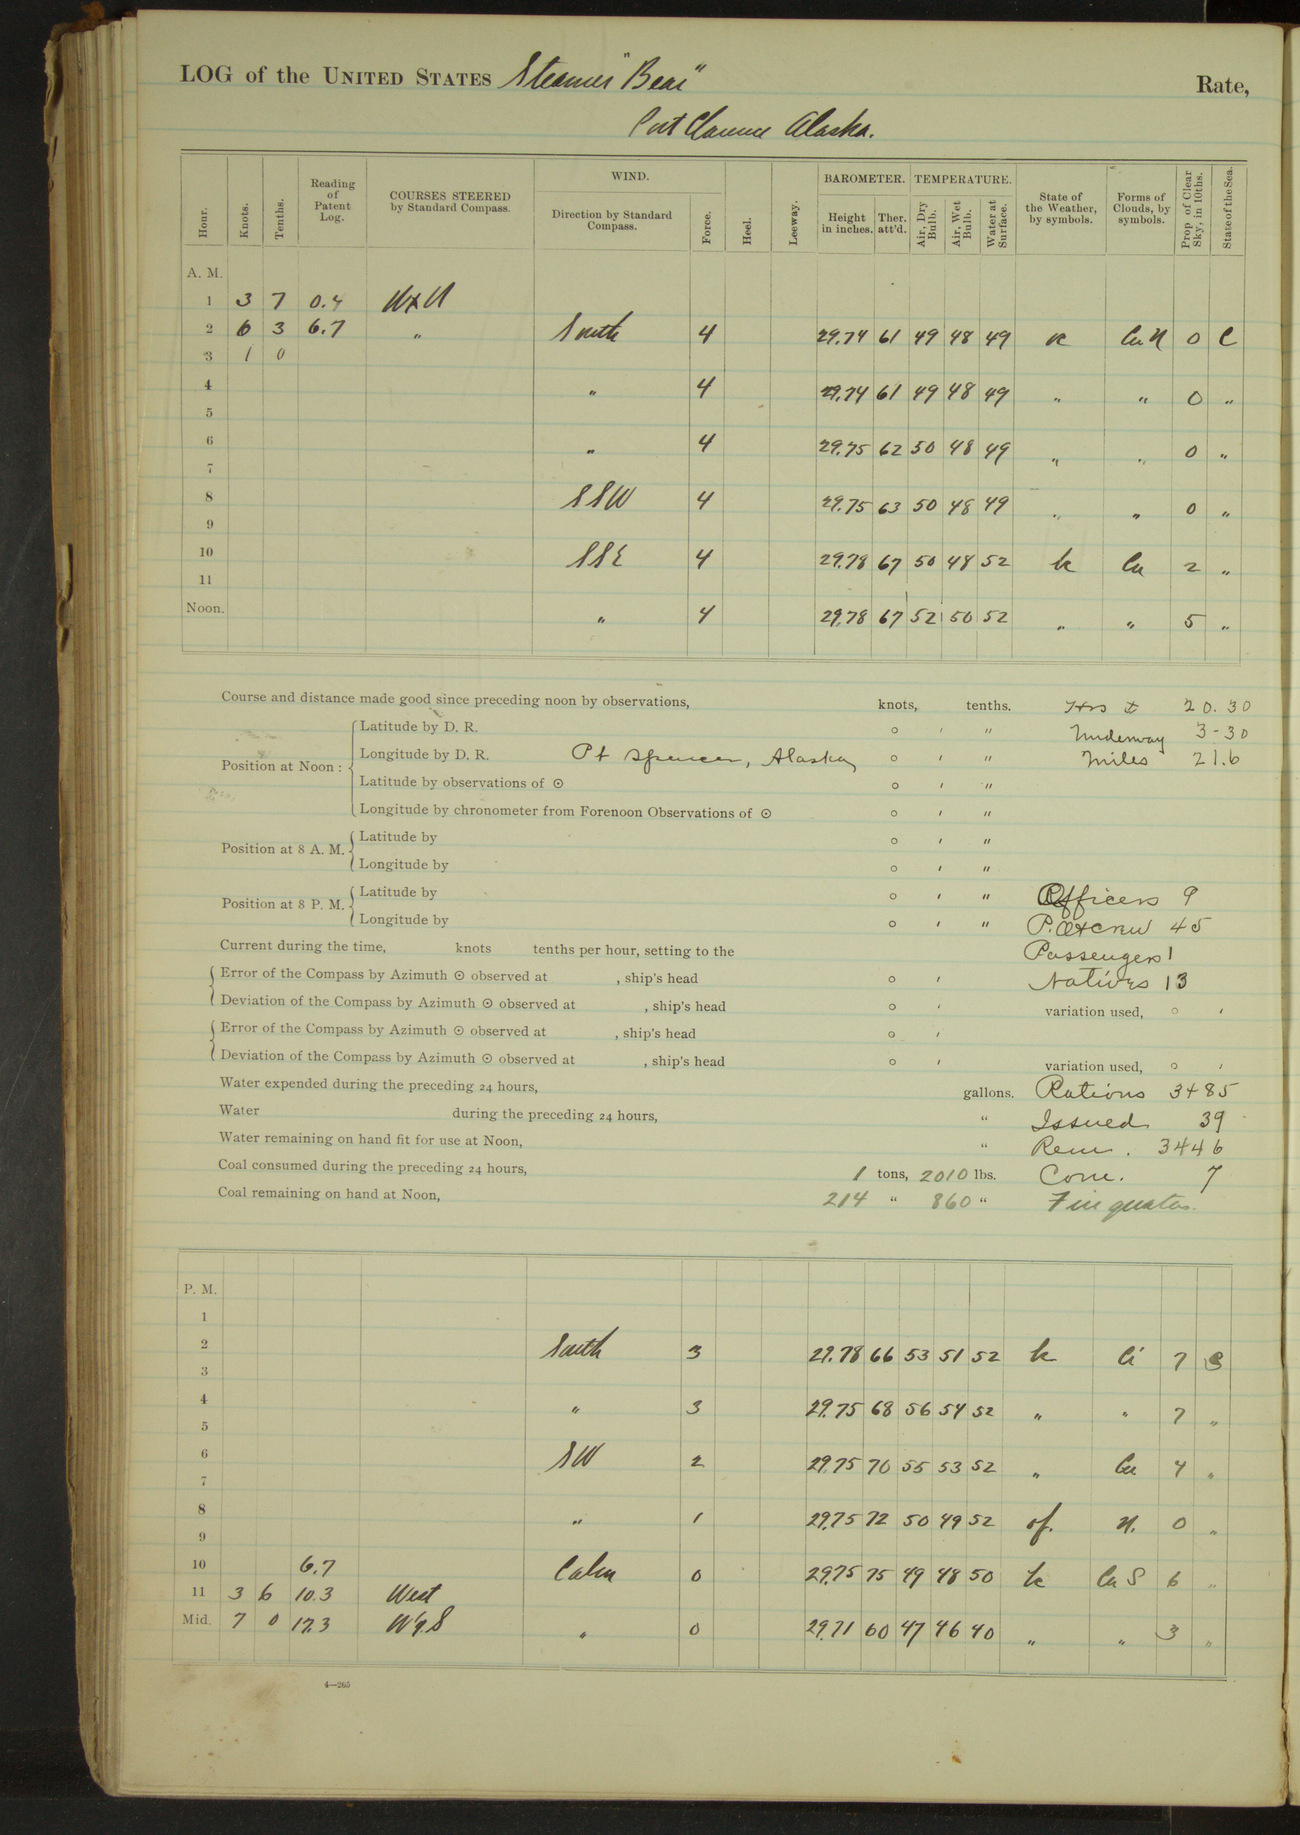 LOG of the UNITED STATES Steamer "Bear" Rate,
Port Clarence Alaska.
Hour. Knots. Tenths. Reading of Patent Log. COURSES STEERED by Standard Compass. WIND. Direction by Standard Compass. Force. Heel. Leeway. BAROMETER. Height in inches. Ther. att'd. TEMPERATURE. Air, Dry Bulb. Air, Wet Bulb. Water at Surface. State of the Weather, by symbols. Forms of Clouds, by symbols. Prop of Clear Sky, in 10ths. State of the Sea.
A. M.
1 3 7 0.4 NxW
2 6 3 6.7 " South 4 29.74 61 49 48 49 oc Cu N 0 C
3 1 0
4 " 4 29.74 61 49 48 49 " " 0 "
5
6 " 4 29.75 62 50 48 49 " " 0 "
7
8 SSW 4 29.75 63 50 48 49 " " 0 "
9
10 SSE 4 29.78 67 50 48 52 bc Cu 2 "
11
Noon. " 4 29.78 67 52 50 52 " " 5 "
Course and distance made good since preceding noon by observations, knots, tenths. Hrs 20.30
Latitude by D. R. ° ' " Underway 3-30
Position at Noon : Longitude by D. R. Pt Spencer, Alaska ° ' " Miles 21.6
Latitude by observations of ⊙ ° ' "
Longitude by chronometer from Forenoon Observations of ⊙ ° ' "
Position at 8 A. M. Latitude by ° ' "
Longitude by ° ' "
Position at 8 P. M. Latitude by ° ' " Officers 9
Longitude by ° ' " P.O. & Crew 45
Current during the time, knots tenths per hour, setting to the Passengers 1
Error of the Compass by Azimuth ⊙ observed at , ship's head ° ' Natives 13
Deviation of the Compass by Azimuth ⊙ observed at , ship's head ° ' variation used, ° '
Error of the Compass by Azimuth ⊙ observed at , ship's head ° '
Deviation of the Compass by Azimuth ⊙ observed at , ship's head ° ' variation used, ° '
Water expended during the preceding 24 hours, gallons. Rations 3485
Water during the preceding 24 hours, " Issued 39
Water remaining on hand fit for use at Noon, " Rem. 3446
Coal consumed during the preceding 24 hours, 1 tons, 2010 lbs. Com. 7
Coal remaining on hand at Noon, 214 " 860 "
P. M.
1
2 South 3 29.78 66 53 51 52 bc Ci 7 S
3
4 " 3 29.75 68 56 54 52 " " 7 "
5
6 SW 2 29.75 70 55 53 52 " Cu 4 "
7
8 " 1 29.75 72 50 49 52 of. N. 0 "
9
10 6.7 Calm 0 29.75 75 49 48 50 bc Cu S 6 "
11 3 6 10.3 West
Mid. 7 0 17.3 " 0 29.71 60 47 46 40 " " 3 "
4—265